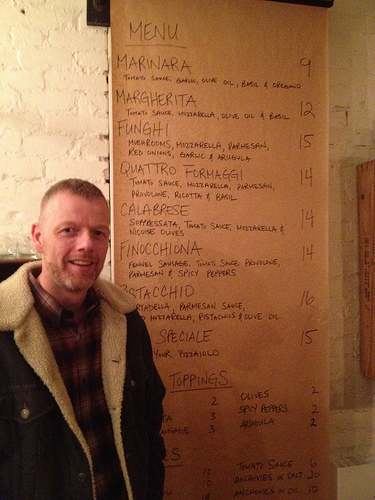 MENU
MARINARA 9
TOMATO SAUCE, GARLIC, OLIVE OIL, BASIL & OREGANO
MARGHERITA 12
TOMATO SAUCE, MOZZARELLA, OLIVE OIL & BASIL
FUNGHI 15
MUSHROOMS, MOZZARELLA, PARMESAN,
RED ONIONS, GARLIC & ARUGULA
QUATTRO FORMAGGI 14
TOMATO SAUCE, MOZZARELLA, PARMESAN,
PROVOLONE, RICOTTA & BASIL
CALABRESE 14
SOPPRESSATA, TOMATO SAUCE, MOZZARELLA &
NIÇOISE OLIVES
FINOCCHIONA 14
FENNEL SAUSAGE, TOMATO SAUCE, PROVOLONE,
PARMESAN & SPICY PEPPERS
STACCHIO 16
RTADELLA, PARMESAN SAUCE,
D MOZZARELLA, PISTACHIOS & OLIVE OIL
SPECIALE 15
YOUR PIZZAIOLO
TOPPINGS
2 OLIVES 2
TA 3 SPICY PEPPERS 2
USAGE 3 ARUGULA 2
S
10 TOMATO SAUCE 6
10 ANCHOVIES IN SALT 20
ANCHOVIES IN OIL 10